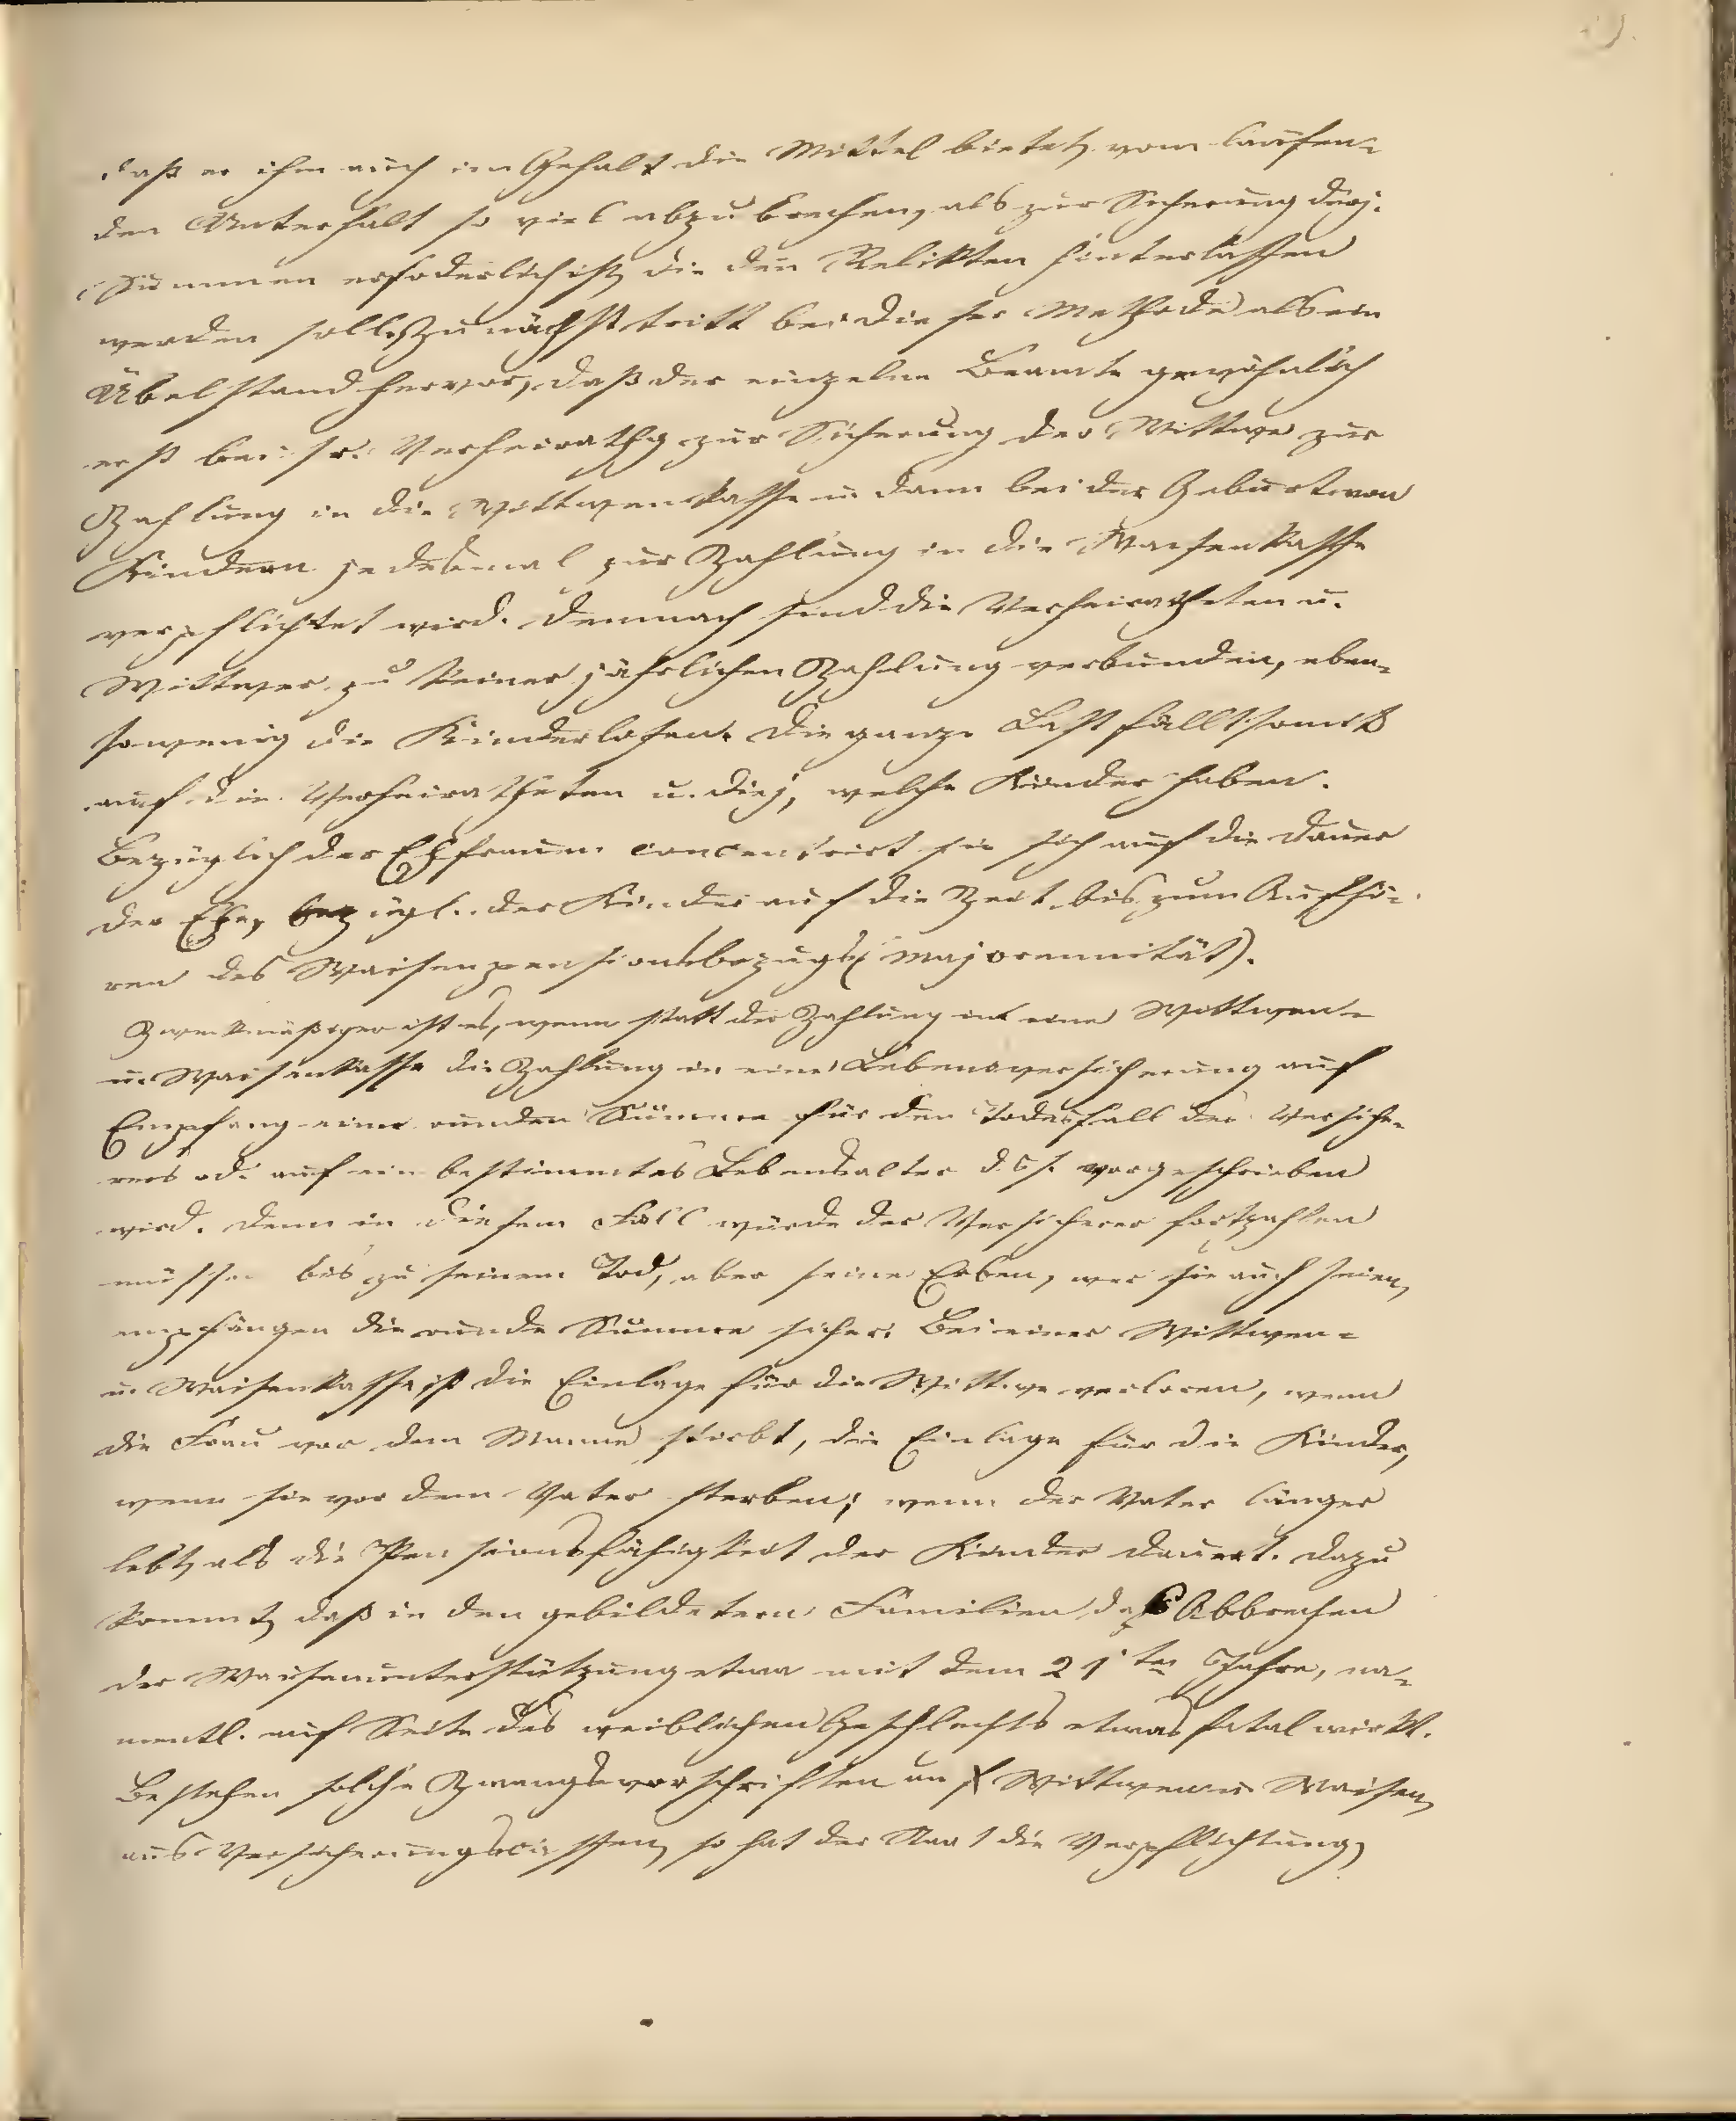 daß er ihm auch im Gehalt die Mittel bietet, vom laufen-
den Unterhalt so viel abzubrechen, als zur Sicherung derj.
Summen erfoderlich ist, die den Relikten hinterlassen
werden soll. Zunächst tritt bei dieser Methode als ein
Übelstand hervor, daß der einzelne Beamte gewöhnlich
erst bei sr. Verheirathg zur Sicherung der Wittwe zur
Zahlung in die Wittwenkasse u. dann bei der Geburt von
Kindern jedesmal zur Zahlung in die Waisenkasse
verpflichtet wird. Demnach sind die Verheiratheten u.
Wittwer zu keiner jährlichen Zahlung verbunden, eben-
sowenig die Kinderlosen. Die ganze Last fällt somit
auf die Verheiratheten u. diej., welche Kinder haben.
Bezüglich der Ehfrauen concentrirt sie sich auf die Dauer
der Ehe, bezügl. der Kinder auf die Zeit bis zum Aufhö-
ren des Waisenpensionsbezugs (Majorennität).
Zweckmäßiger ist es, wenn statt der Zahlung in eine Wittwen-
u. Waisenkasse die Zahlung in eine Lebensversicherung auf
Empfang einer runden Summe für den Todesfall des Versiche-
rers od. auf ein bestimmtes Lebensalter dss. vorgeschrieben
wird. Denn in diesem Fall würde der Versicherer fortzahlen
müssen bis zu seinem Tod, aber seine Erben, wer sie auch seien,
empfangen die runde Summe sicher. Bei einer Wittwen-
u. Waisenkasse ist die Einlage für die Wittwe verloren, wenn
die Frau vor dem Manne stirbt, die Einlage für die Kinder,
wenn sie vor dem Vater sterben; wenn der Vater länger
lebt, als die Pensionsfähigkeit der Kinder dauert. Dazu
kommt, daß in den gebildetern Familien das Abbrechen
der Waisenunterstützung etwa mit dem 21ten Jahre, na-
mentl. auf Seite des weiblichen Geschlechts etwas fatal wirkt.
Bestehen solche Zwangsvorschriften an Wittwen u. Waisen,
aus Versicherungscassen, so hat der Staat die Verpflichtung,